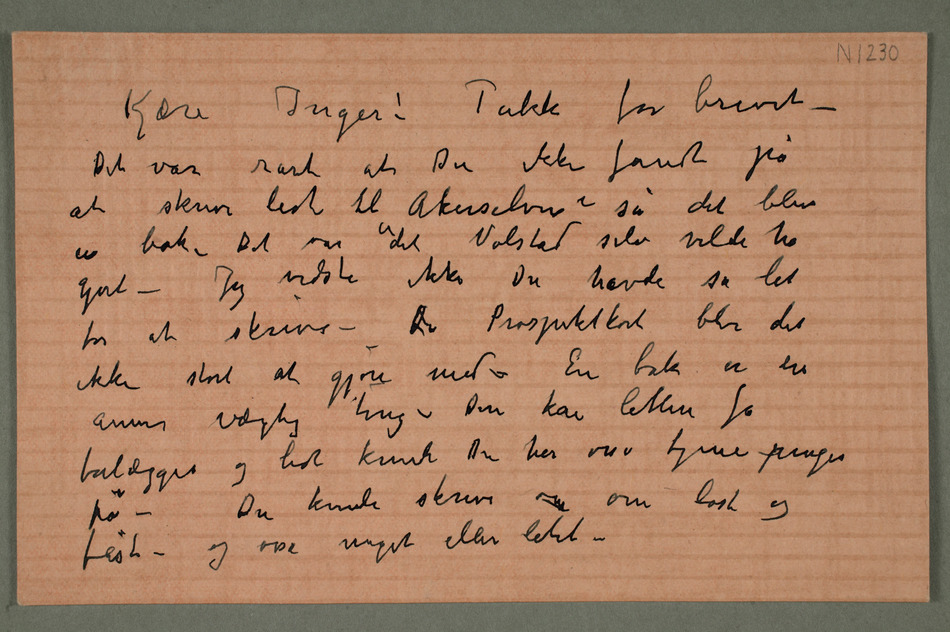 N1230
Kjære Inger! Takk for brevet –
Det var rart at Du ikke fandt på
at skrive lidt til Akerselven så det blev
en bok. Det var det Volstad selv vilde ha
gjort – Jeg vidste ikke Du havde så let
for at skrive – Prospektkort blir det
ikke stort at gjøre med – En bok er en
annen vægtig ting – Den kan letten få
forlægger og lidt kunde Du her tjene penger
på – Du kunde skrive om løst og
fast – og meget eller lidet –